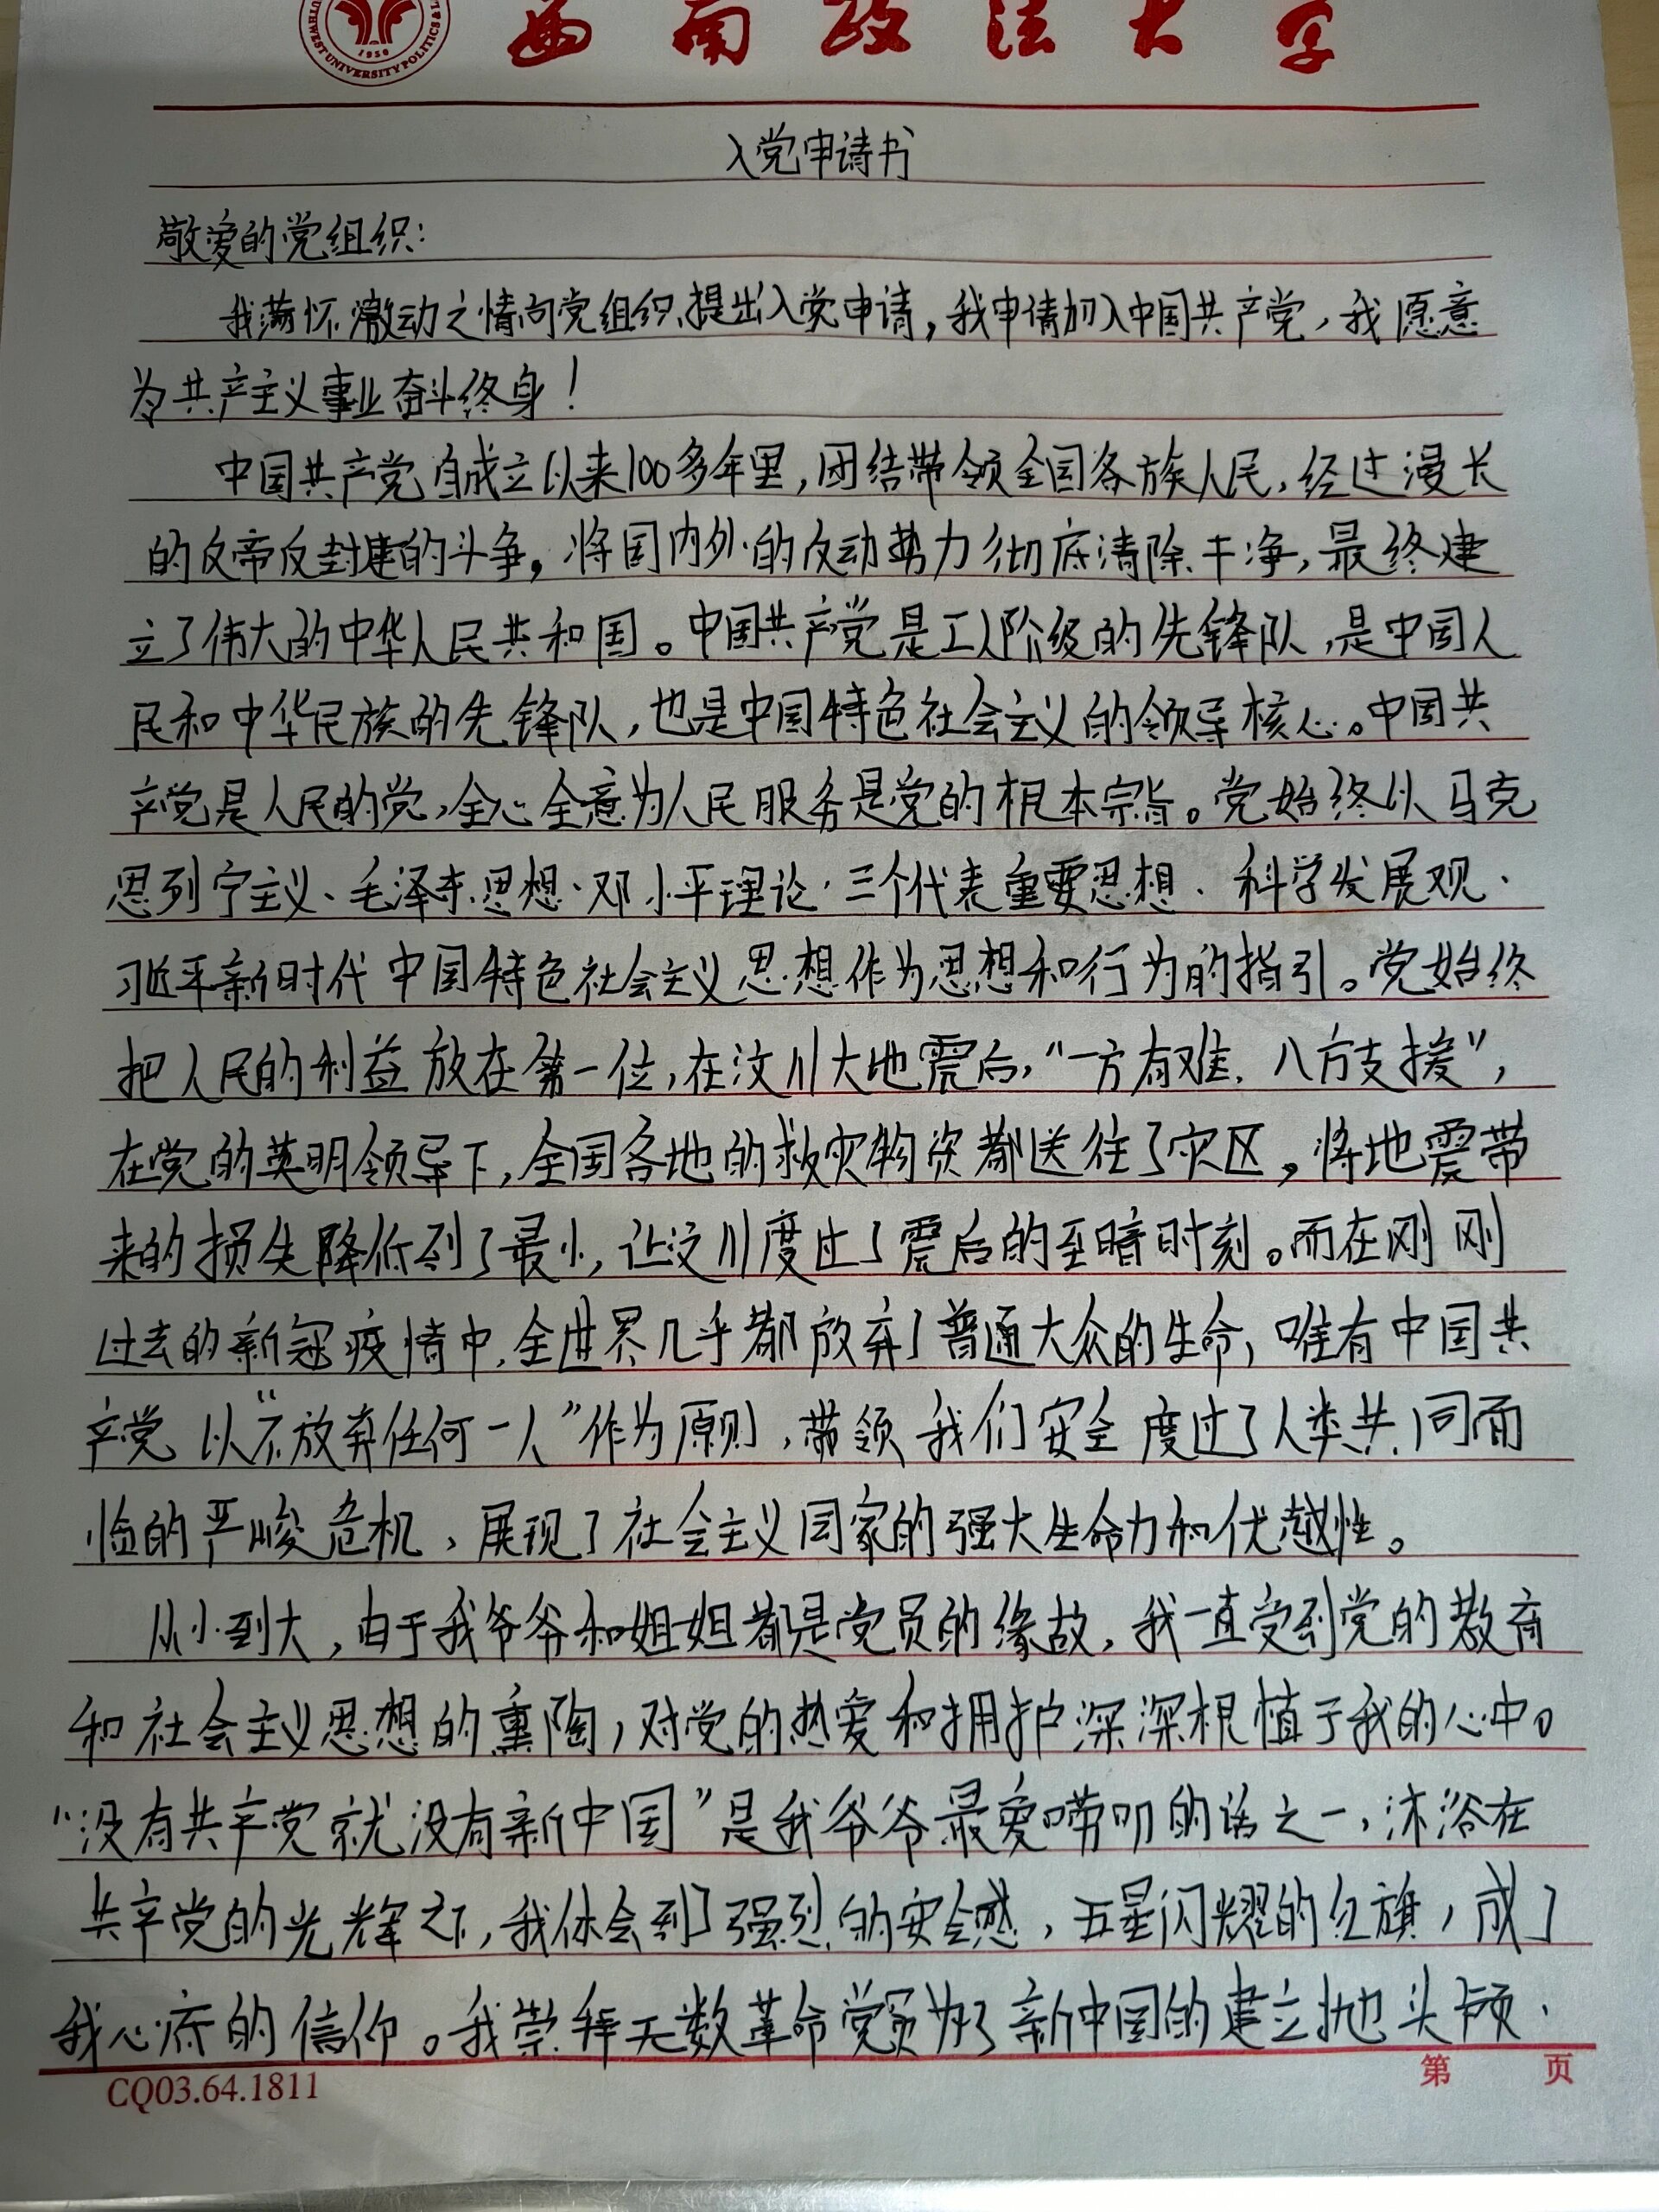 UTHWEST UNIVERSITY POLITICS &
1950
西南政法大学
入党申请书
敬爱的党组织:
我满怀激动之情向党组织提出入党申请,我申请加入中国共产党,我愿意
为共产主义事业奋斗终身!
中国共产党自成立以来100多年里,团结带领全国各族人民,经过漫长
的反帝反封建的斗争,将国内外的反动势力彻底清除干净,最终建
立了伟大的中华人民共和国。中国共产党是工人阶级的先锋队,是中国人
民和中华民族的先锋队,也是中国特色社会主义的领导核心。中国共
产党是人民的党,全心全意为人民服务是党的根本宗旨。党始终以马克
思列宁主义、毛泽东思想、邓小平理论、三个代表重要思想、科学发展观、
习近平新时代中国特色社会主义思想作为思想和行为的指引。党始终
把人民的利益放在第一位,在汶川大地震后,“一方有难,八方支援”,
在党的英明领导下,全国各地的救灾物资都送往了灾区,将地震带
来的损失降低到了最小,让汶川度过了震后的至暗时刻。而在刚刚
过去的新冠疫情中,全世界几乎都放弃了普通大众的生命,唯有中国共
产党以“不放弃任何一人”作为原则,带领我们安全度过了人类共同面
临的严峻危机,展现了社会主义国家的强大生命力和优越性。
从小到大,由于我爷爷和姐姐都是党员的缘故,我一直受到党的教育
和社会主义思想的熏陶,对党的热爱和拥护深深根植于我的心中。
“没有共产党就没有新中国”是我爷爷最爱唠叨的话之一,沐浴在
共产党的光辉之下,我体会到了强烈的安全感,五星闪耀的红旗,成了
我心底的信仰。我崇拜无数革命党员为了新中国的建立抛头颅、
CQ03.64.1811
第 页